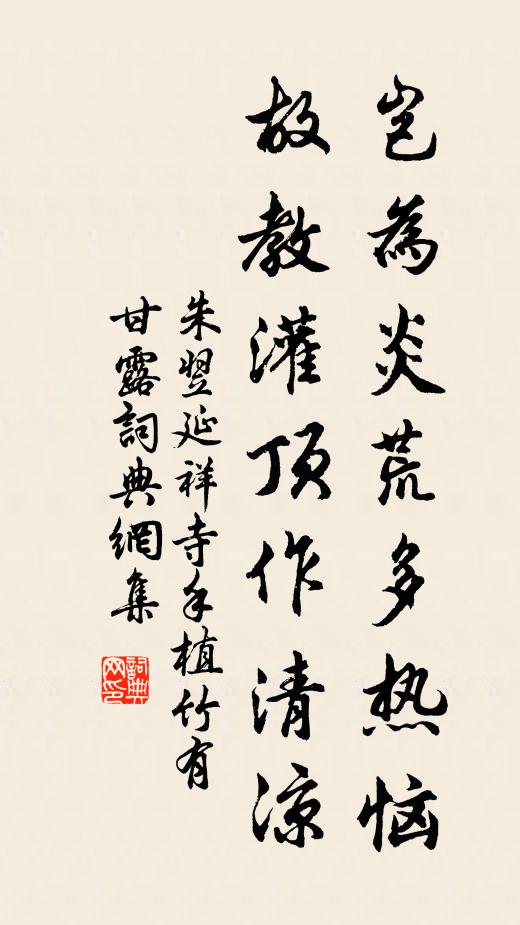 豈為炎荒多热恼
故教灌顶作清凉
朱翌延祥寺手植竹有
甘露詞典網集
詞典网印